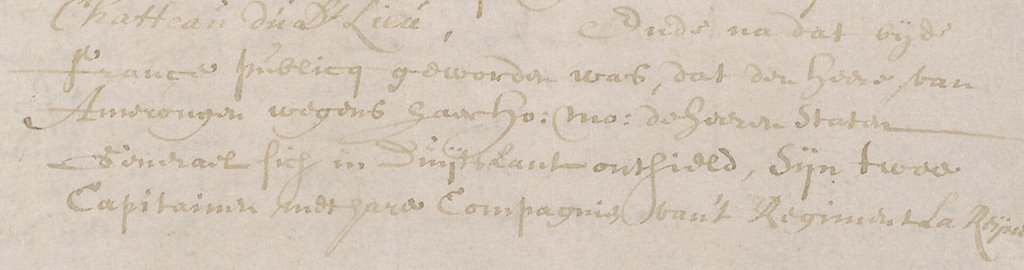 Chatteau du Dt Lieu, Ende na dat bijde
france publicq geworden was, dat den heere van
Amerongen wegens haer Ho: Mo: de heeren Staten
Generael sich in Duijtslant onthield, Sijn twee
Capitainen met hare Compagnies van't Regiment La Reijne